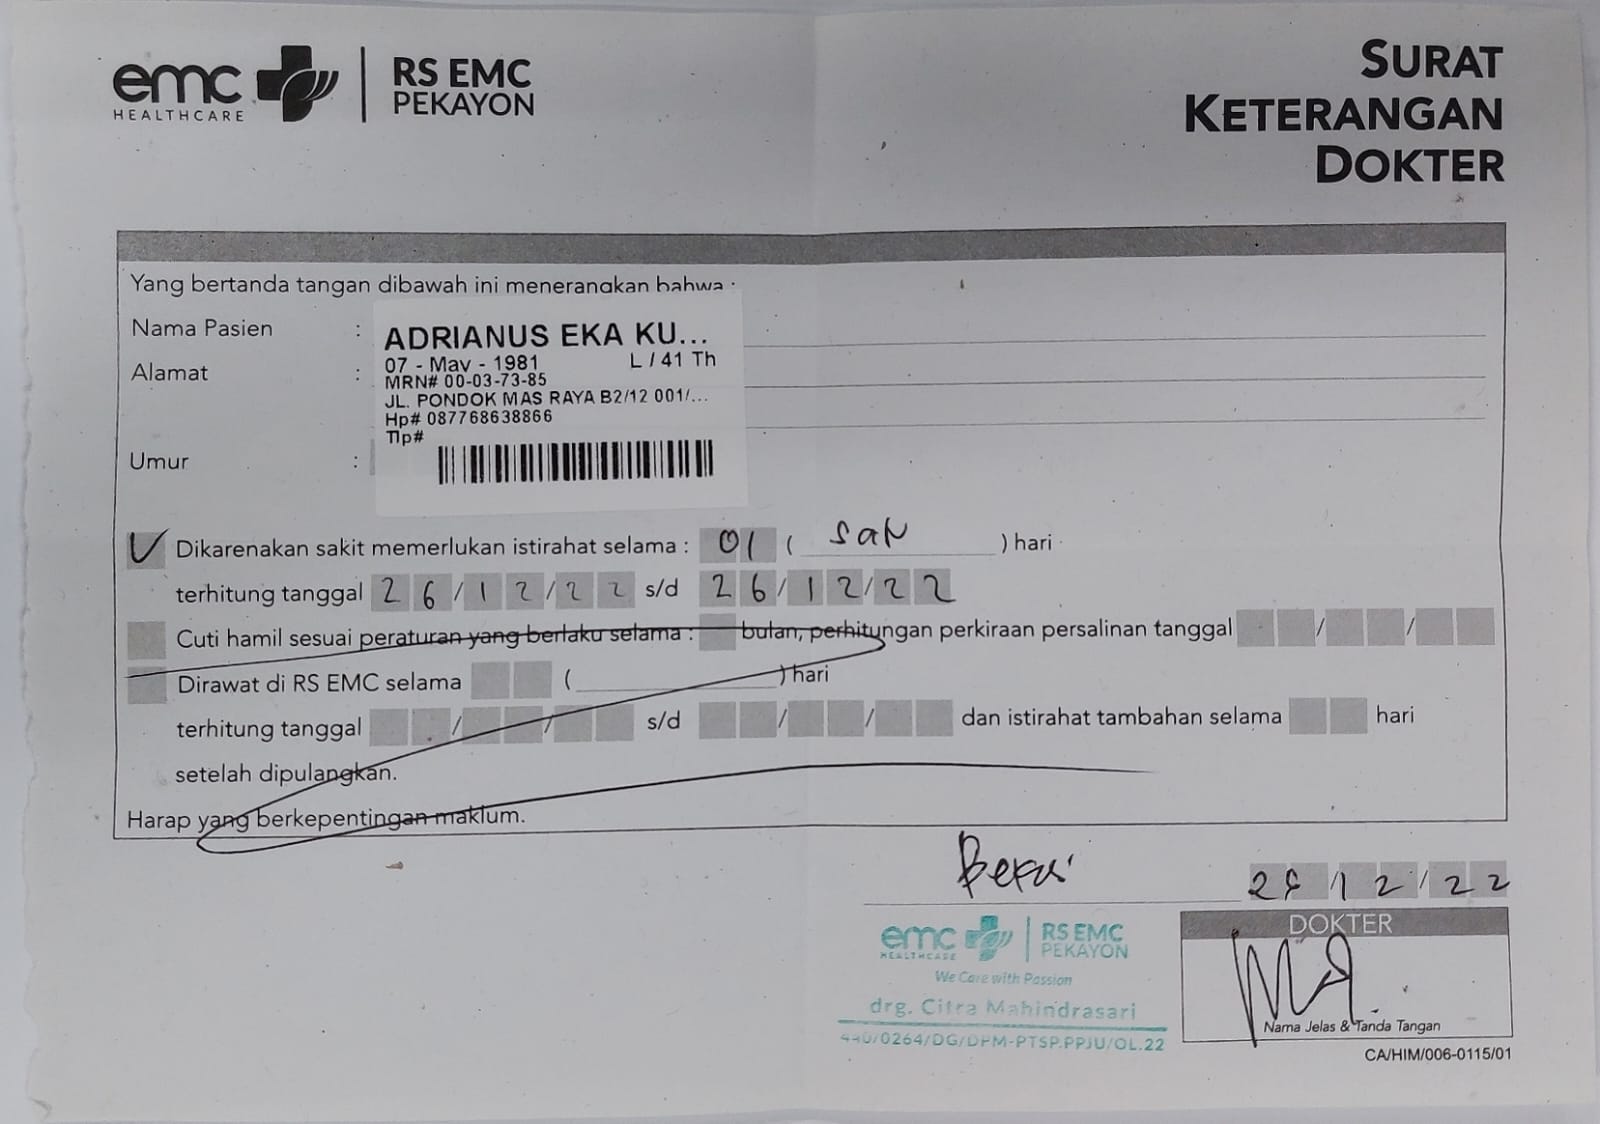 emc
HEALTHCARE
RS EMC
PEKAYON
SURAT
KETERANGAN
DOKTER
Yang bertanda tangan dibawah ini menerangkan bahwa :
Nama Pasien :
Alamat :
Umur :
ADRIANUS EKA KU...
07 - May - 1981 L / 41 Th
MRN# 00-03-73-85
JL. PONDOK MAS RAYA B2/12 001/...
Hp# 087768638866
Tlp#
Dikarenakan sakit memerlukan istirahat selama : 01 ( ) hari
terhitung tanggal 26/12/22 s/d 26/12/22
Cuti hamil sesuai peraturan yang berlaku selama : bulan, perhitungan perkiraan persalinan tanggal / /
Dirawat di RS EMC selama ( ) hari
terhitung tanggal / / s/d / / dan istirahat tambahan selama hari
setelah dipulangkan.
Harap yang berkepentingan maklum.
/12/22
emc
HEALTHCARE
RS EMC
PEKAYON
We Care with Passion
drg. Citra Mahindrasari
440/0264/DG/DPM-PTSP.PPJU/OL.22
DOKTER
Nama Jelas & Tanda Tangan
CA/HIM/006-0115/01